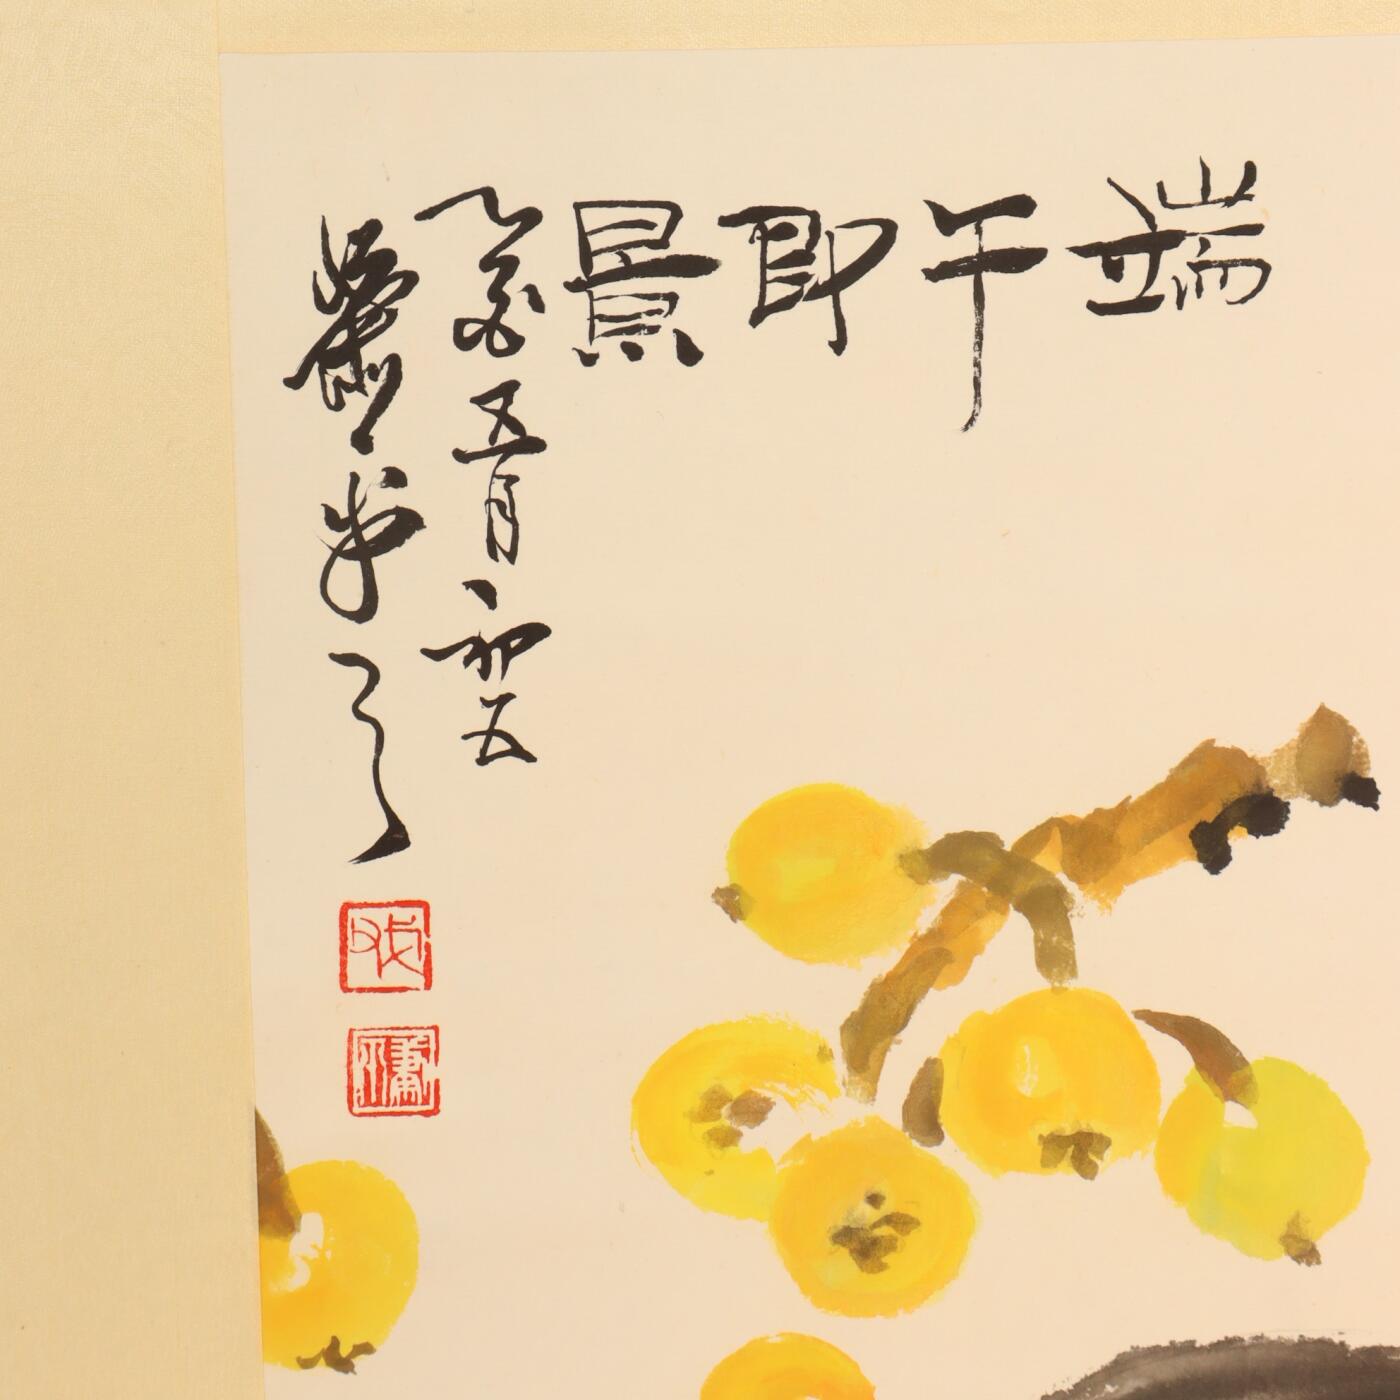 端午即景
乙酉五月初五
蕭平
蕭平